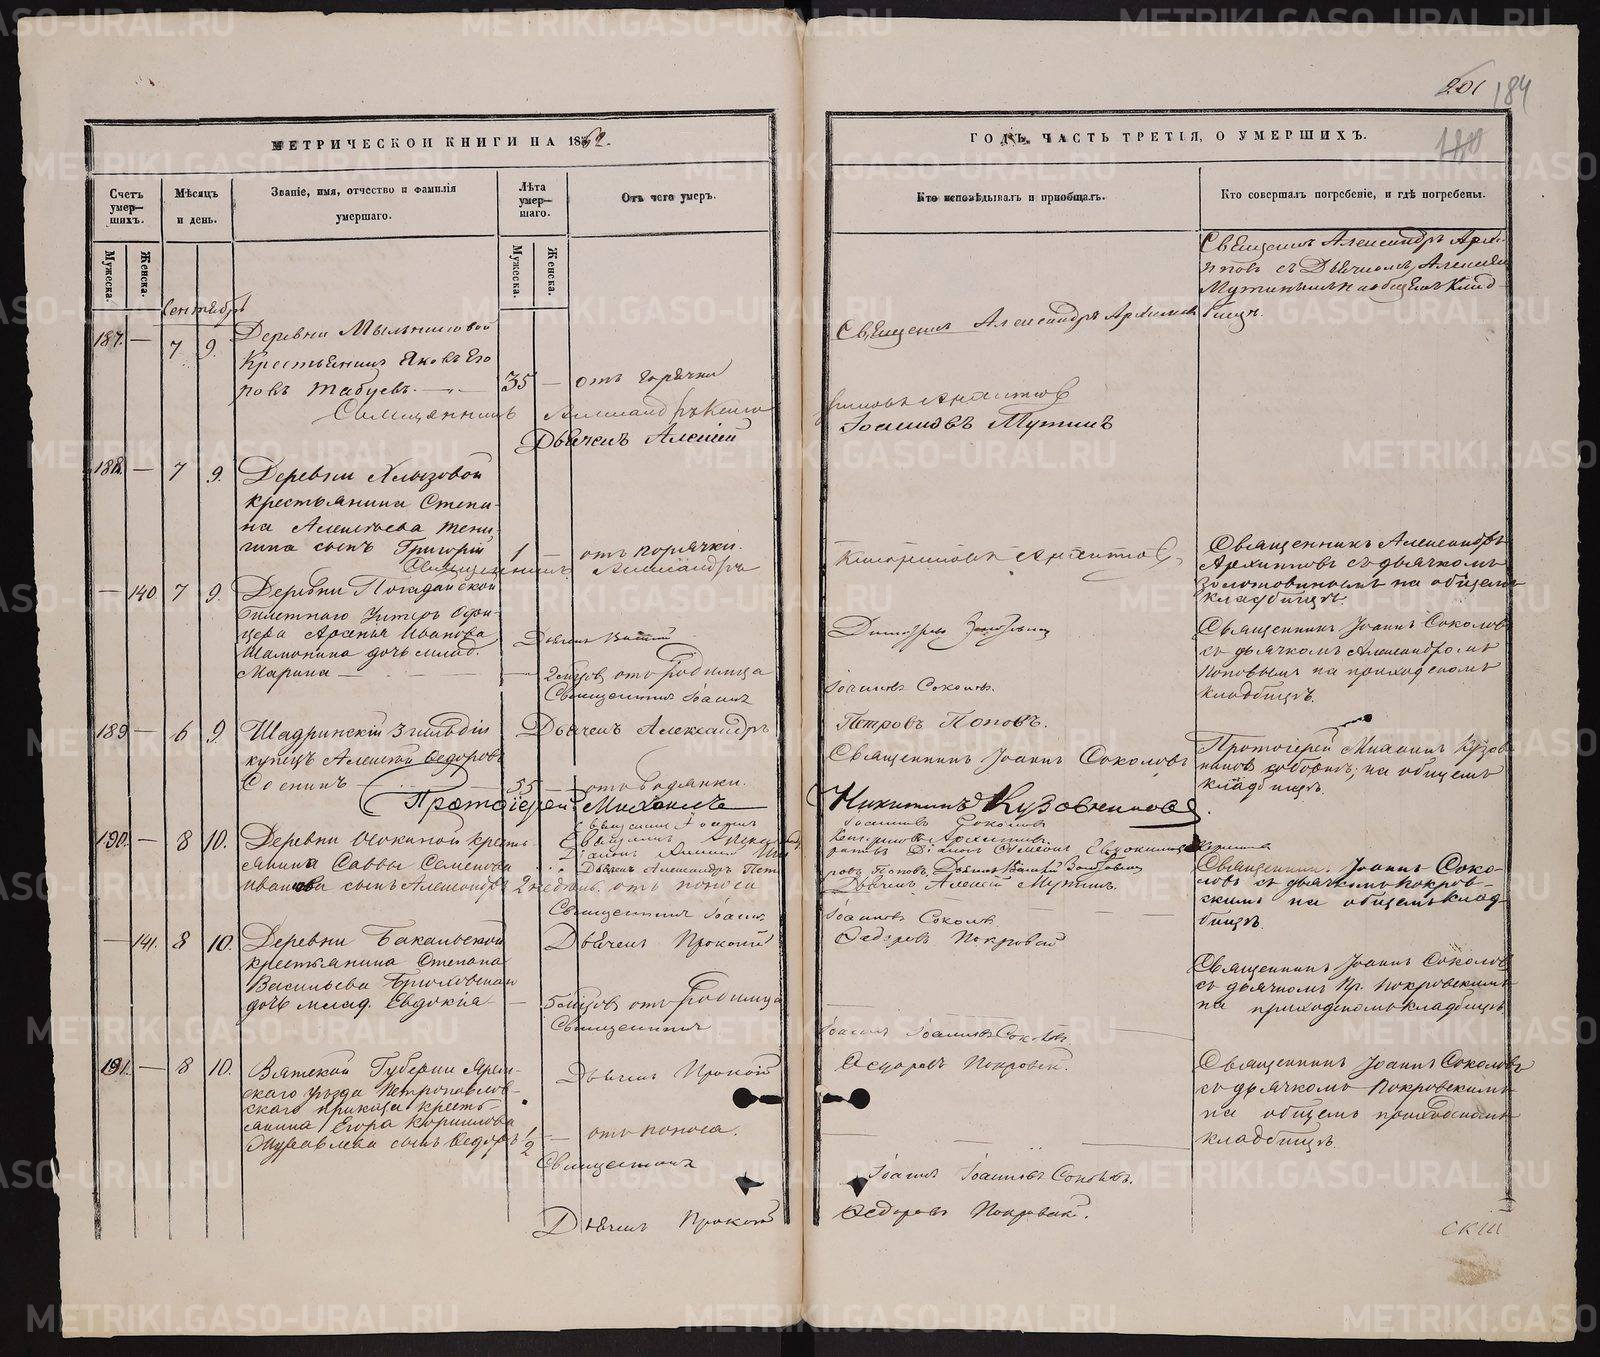 201 184
180
МЕТРИЧЕСКОЙ КНИГИ НА 1862.
ГОДЪ, ЧАСТЬ ТРЕТІЯ, О УМЕРШИХЪ.
Счетъ умер-шихъ.
Мѣсяцъ и день.
Званіе, имя, отчество и фамилія умершаго.
Лѣта умер-шаго.
Отъ чего умеръ.
Кто исповѣдывалъ и пріобщалъ.
Кто совершалъ погребеніе, и гдѣ погребены.
Мужеска.
Женска.
Мужеска.
Женска.
Сентябрь
Священникъ Александръ Архи-
повъ съ Дьячкомъ Алексѣемъ
Мутинымъ на общемъ Клад-
бищѣ.
187. — 7 9. Деревни Мыльниковой
Крестьянинъ Яковъ Его
ровъ Табуевъ. 35 — отъ горячки
Священникъ Александръ Архиповъ
Священникъ Александръ
Дьячекъ Алексѣй
Іоанновъ Мутинъ
188. — 7 9. Деревни Хлызовой
крестьянина Степа-
на Алексѣева
сынъ Григорій 1 — отъ горячки.
Священникъ Александръ
Священникъ Александръ
Архиповъ съ дьячкомъ
Золотовицкимъ на общемъ
кладбищѣ.
— 140 7 9. Деревни Погадайской
билетнаго Унтеръ Офи-
цера Арсенья Иванова
Шамонина дочь млад.
Марина — 2 мѣсяцовъ отъ Родимца
Дьячекъ
Священникъ Іоаннъ
Іоанновъ Соколовъ.
Священникъ Іоаннъ Соколовъ
съ дьячкомъ Александромъ
Поповымъ на приходскомъ
кладбищѣ.
189 — 6 9. Шадринскій 3 гильдіи
купецъ Алексѣй Ѳедоровъ
Соснинъ 55 — отъ водянки.
Дьячекъ Александръ
Петровъ Поповъ.
Священникъ Іоаннъ Соколовъ
Протоіерей Михаилъ
Никитинъ Кузовниковъ.
Протоіерей Михаилъ Кузов-
никовъ соборнѣ, на общемъ
кладбищѣ.
190. — 8 10. Деревни Осокиной кресть-
янина Саввы Семенова
Иванова сынъ Александръ 2 недѣль. отъ поноса
Дьячекъ Александръ Пет
ровъ Поповъ,
Дьячекъ Алексѣй Мутинъ.
Священникъ Іоаннъ
Іоанновъ Соколовъ
Священникъ Іоаннъ Соко-
ловъ съ дьячкомъ Покров-
скимъ на общемъ клад-
бищѣ.
— 141. 8 10. Деревни Бакальской
крестьянина Степана
Васильева
дочь млад. Евдокія — 5 мѣсяцовъ отъ Родимца
Дьячекъ Прокопій
Ѳедоровъ Покровскій
Священникъ
Іоаннъ Іоанновъ Соколовъ
Священникъ Іоаннъ Соколовъ
съ дьячкомъ Пр. Покровскимъ
на приходскомъ кладбищѣ
191. — 8 10. Вятской Губерніи Ярен-
скаго уѣзда Петропавлов-
скаго прихода кресть-
янина Егора Кирилова
Журавлева сынъ Ѳедоръ 1/2 — отъ поноса.
Дьячекъ Прокопій
Ѳедоровъ Покровскій.
Священникъ
Іоаннъ Іоанновъ Соколовъ.
Священникъ Іоаннъ Соколовъ
съ дьячкомъ Покровскимъ
на общемъ приходскомъ
кладбищѣ.
Дьячекъ Прокопій
Ѳедоровъ Покровскій.
скій
METRIKI.GASO-URAL.RU